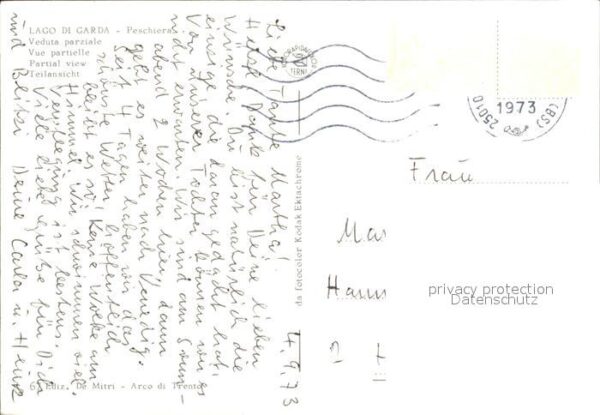 LAGO DI GARDA - Peschiera
Veduta parziale
Vue partielle
Partial view
Teilansicht
4.9.73
Liebe Tante Martha!
Hab Dank für Deine lieben
Wünsche. Du bist natürlich die
einzige die daran gedacht hat.
Von unserer Tochter können wir es
nicht erwarten. Wir sind am Sonn-
abend 2 Wochen hier, dann
geht es weiter nach Venedig.
Seit 4 Tagen haben wir das
schönste Wetter, hoffentlich
bleibt es so, keine Wolke am
Himmel. Wir schwimmen viel.
Verpflegung ist bestens.
Viele liebe Grüße für Dich
und Deine Carla u. Heinz
da fotocolor Kodak Ektachrome
6 Ediz. De Mitri - Arco di Trento
TERNI
25010
1973
(BS)
Frau
Ma
Hann
2
privacy protection
Datenschutz